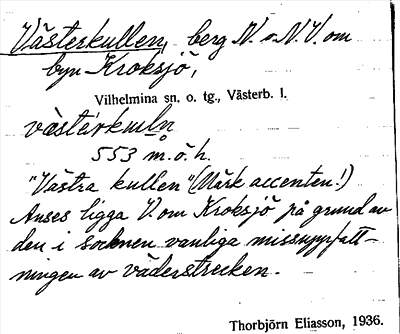 Västerkullen, berg N. o. N.V. om
byn Kroksjö,
Vilhelmina sn. o. tg., Västerb. l.
553 m.ö.h.
"Västra kullen" (Märk accenten!)
Anses ligga V. om Kroksjö på grund av
den i socknen vanliga missuppfatt-
ningen av väderstrecken.
Thorbjörn Eliasson, 1936.